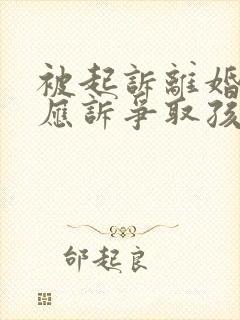 被起訴離婚
應訴爭取孩
邰起良